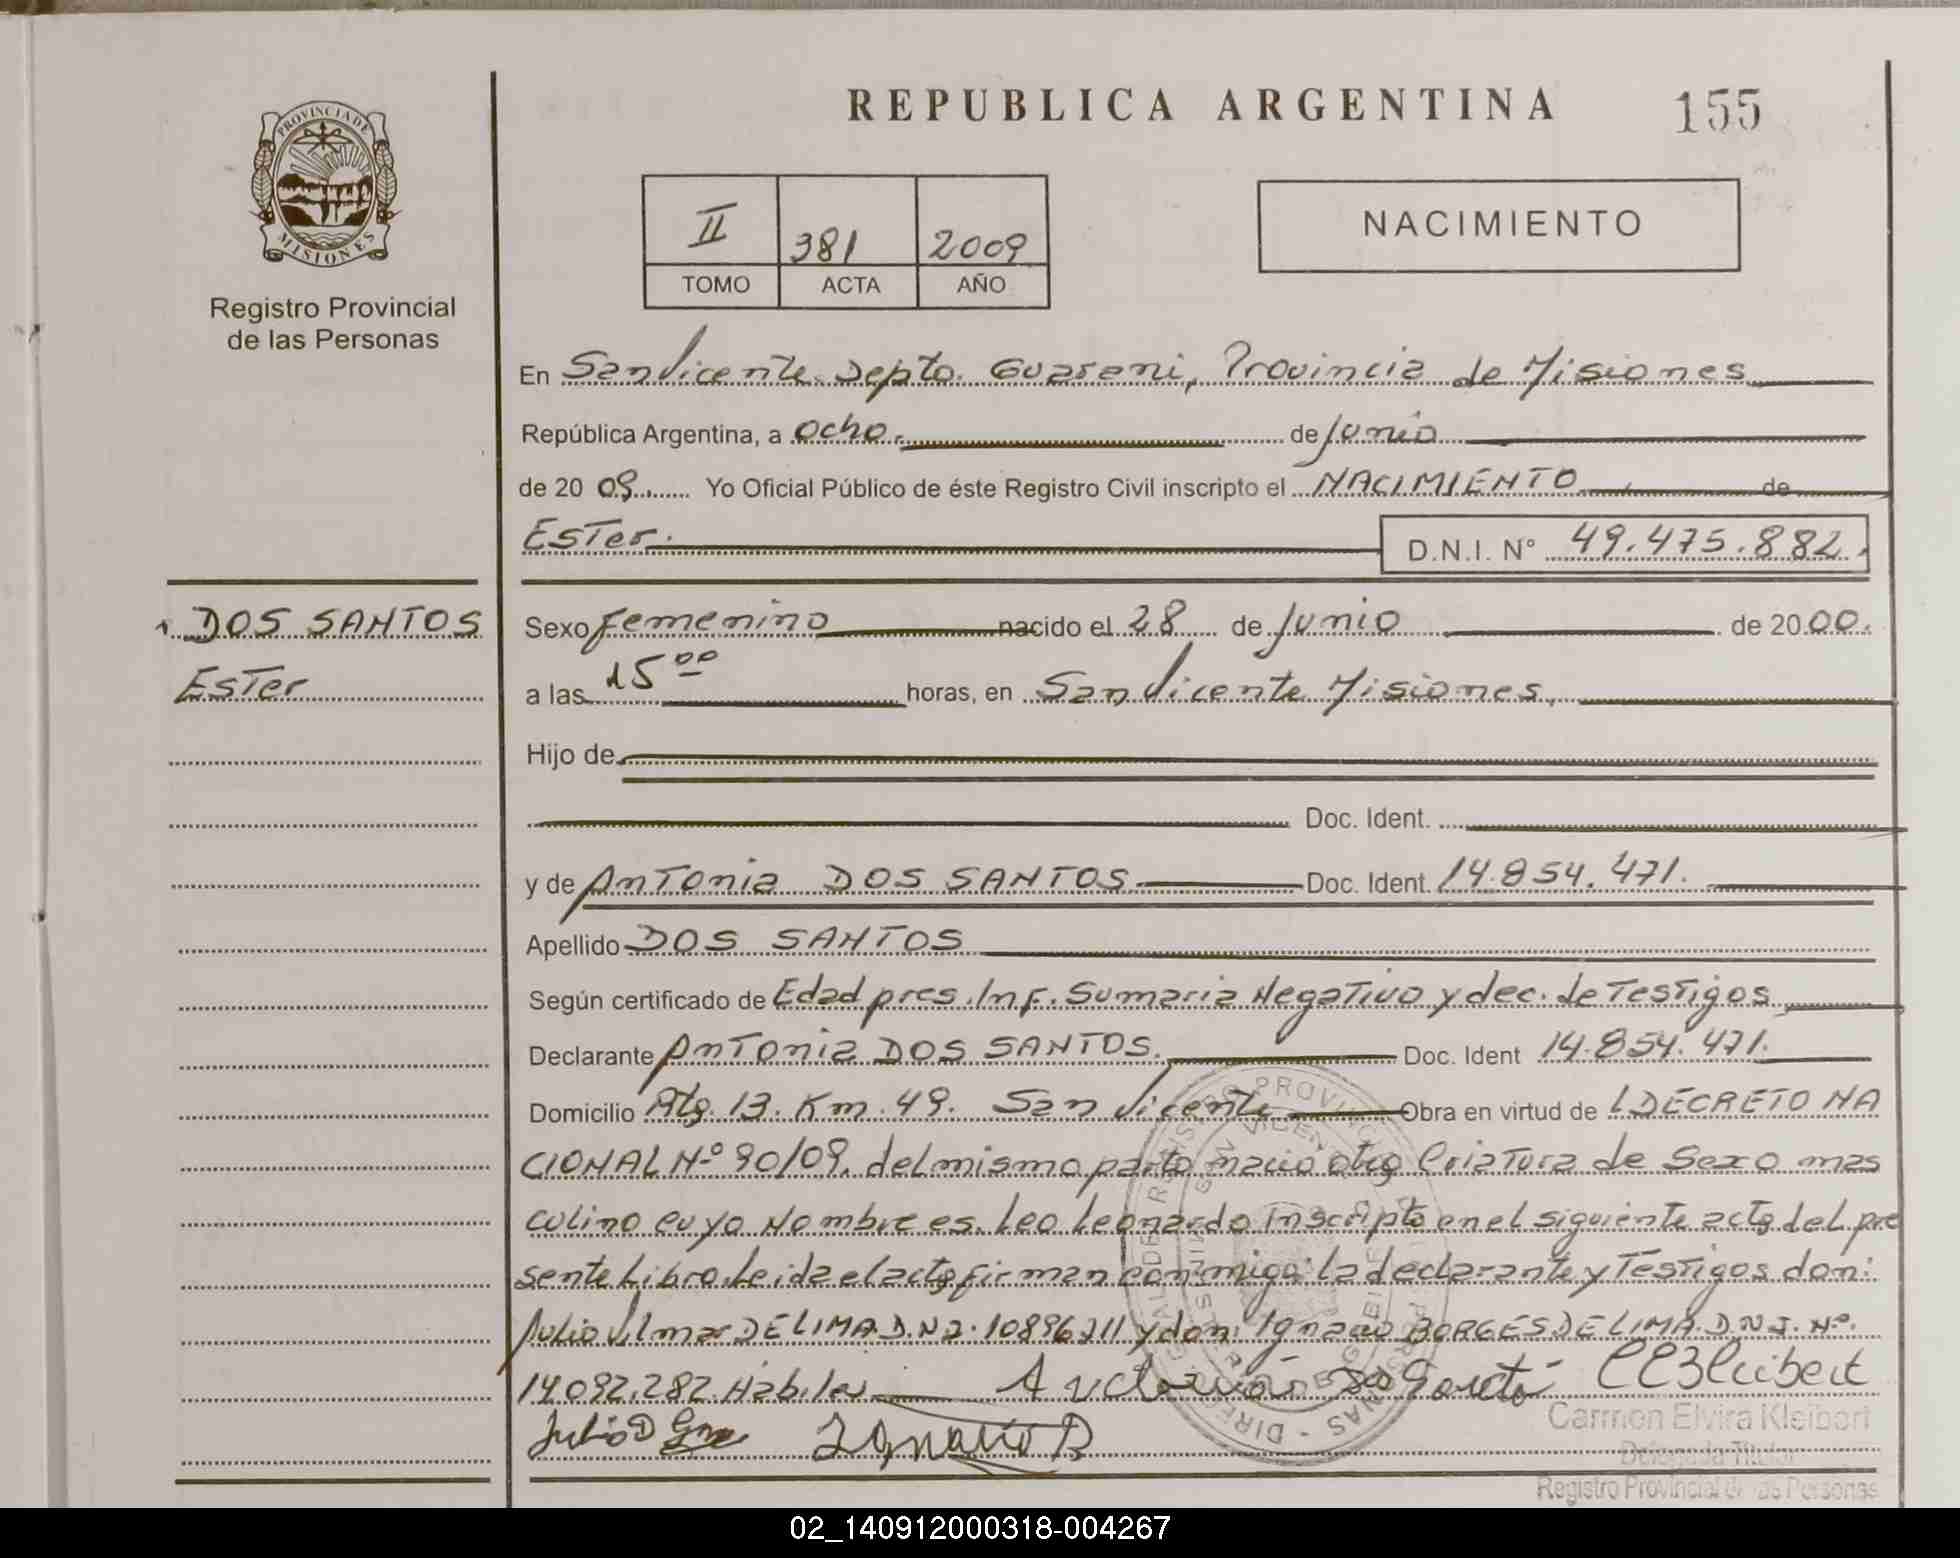 REPUBLICA ARGENTINA
155
PROVINCIA DE
MISIONES
Registro Provincial
de las Personas
II 381 2009
TOMO ACTA AÑO
NACIMIENTO
En San Vicente Depto. Guarani, Provincia de Misiones
República Argentina, a ocho. de Junio
de 2009 Yo Oficial Público de éste Registro Civil inscripto el NACIMIENTO de
Ester. D.N.I. N° 49.475.882.
DOS SANTOS
Ester
Sexo femenino nacido el 28 de Junio de 2000.
a las 15 00 horas, en San Vicente Misiones,
Hijo de
Doc. Ident.
y de Antonia DOS SANTOS Doc. Ident. 14.854.471.
Apellido DOS SANTOS
Según certificado de Edad pres. Inf. Sumaria Negativo y dec. de Testigos
Declarante Antonia DOS SANTOS. Doc. Ident 14.854.471.
Domicilio Rta. 13. Km. 49. San Vicente Obra en virtud de l DECRETO NA
CIONAL Nº 90/09. del mismo parto nacio otra Criatura de Sexo mas
culino cuyo Nombre es. Leo Leonardo inscripto en el siguiente acta del pre
sente Libro. Leida el acta firman conmigo: la declarante y Testigos don:
Julio Vilmar DE LIMA D.N.I. 10896211 y don: Ignacio BORGES DE LIMA. D.N.I. Nº.
14.092.282. Hábiles
Julio D
Ignacio B
Carmen Elvira Kleibert
Delegada Titular
Registro Provincial de las Personas
02_140912000318-004267